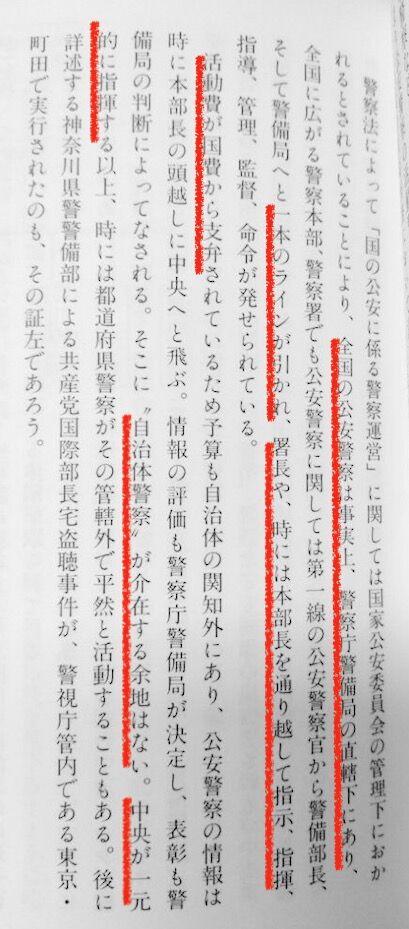 警察法によって「国の公安に係る警察運営」に関しては国家公安委員会の管理下におか
れるとされていることにより、全国の公安警察は事実上、警察庁警備局の直轄下にあり、
全国に広がる警察本部、警察署でも公安警察に関しては第一線の公安警察官から警備部長、
そして警備局へと一本のラインが引かれ、署長や、時には本部長を通り越して指示、指揮、
指導、管理、監督、命令が発せられている。
活動費が国費から支弁されているため予算も自治体の関知外にあり、公安警察の情報は
時に本部長の頭越しに中央へと飛ぶ。情報の評価も警察庁警備局が決定し、表彰も警
備局の判断によってなされる。そこに〝自治体警察〟が介在する余地はない。中央が一元
的に指揮する以上、時には都道府県警察がその管轄外で平然と活動することもある。後に
詳述する神奈川県警警備部による共産党国際部長宅盗聴事件が、警視庁管内である東京・
町田で実行されたのも、その証左であろう。